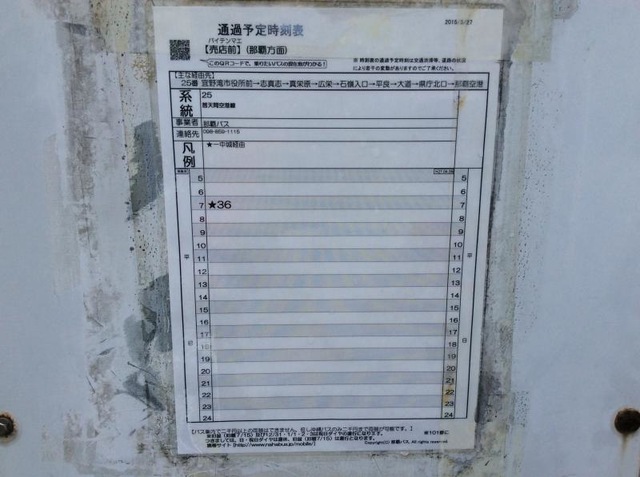 通過予定時刻表
バイテンマエ
【売店前】(那覇方面)
このQRコードで、乗りたいバスの現在地がわかる!
※ 時刻表の通過予定時刻は交通渋滞等、道路の状況
により若干の変動がありますのでご了承ください。
【主な経由地】
25番 宜野湾市役所前→志真志→真栄原→広栄→石嶺入口→平良→大道→県庁北口→那覇空港
系統 25
事業者名 那覇バス
連絡先 098-859-1115
凡例 ★一中城経由
5 5
6 6
7 ★36 7
8 8
9 9
10 10
平 11 11 平
12 12
13 13
14 14
15 15
16 16
17 17
日 18 18 日
19 19
20 20
21 21
22 22
23 23
24 24
携帯サイト (http://www.nahabus.jp/mobile/)
Copyright(C) 那覇バス, All rights reserved